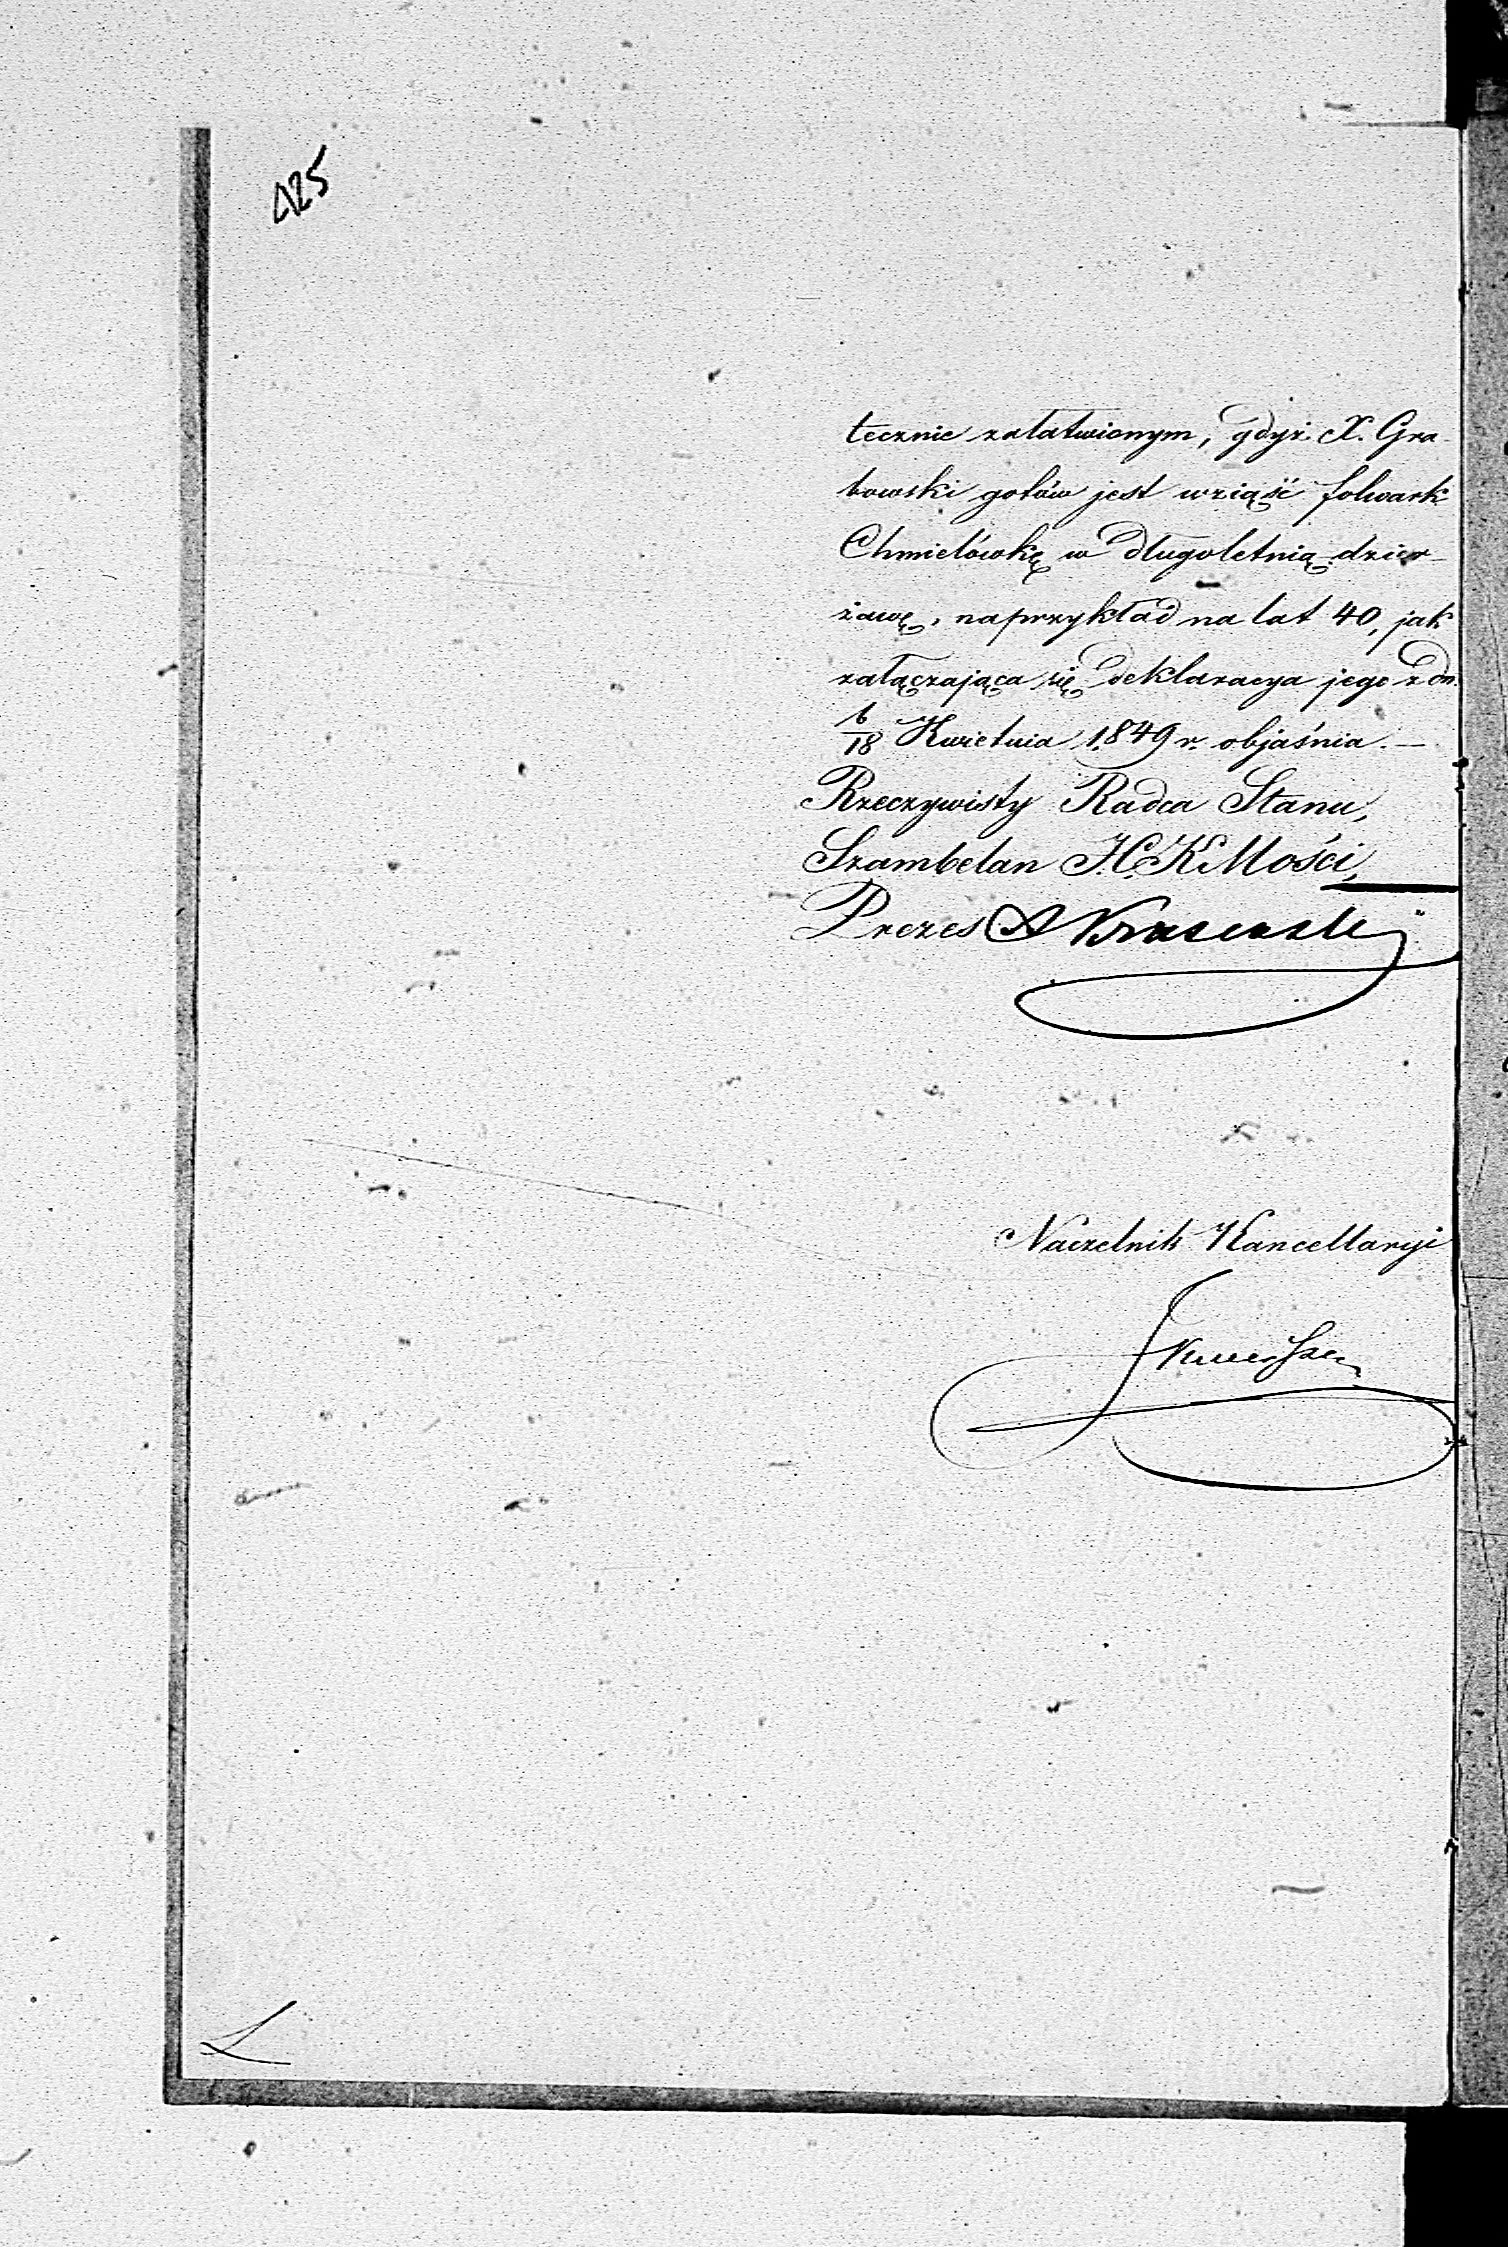 125
tecznie załatwionym, gdyż X. Gra-
bowski gotów jest wziąść folwark
Chmielówkę w długoletnią dzier-
żawę, naprzykład na lat 40, jak
załączająca się deklaracya jego z dn.
6/18 Kwietnia 1849 r. objaśnia. —
Rzeczywisty Radca Stanu,
Szambelan J. C. K Mości,
Prezes
Naczelnik Kancellaryi